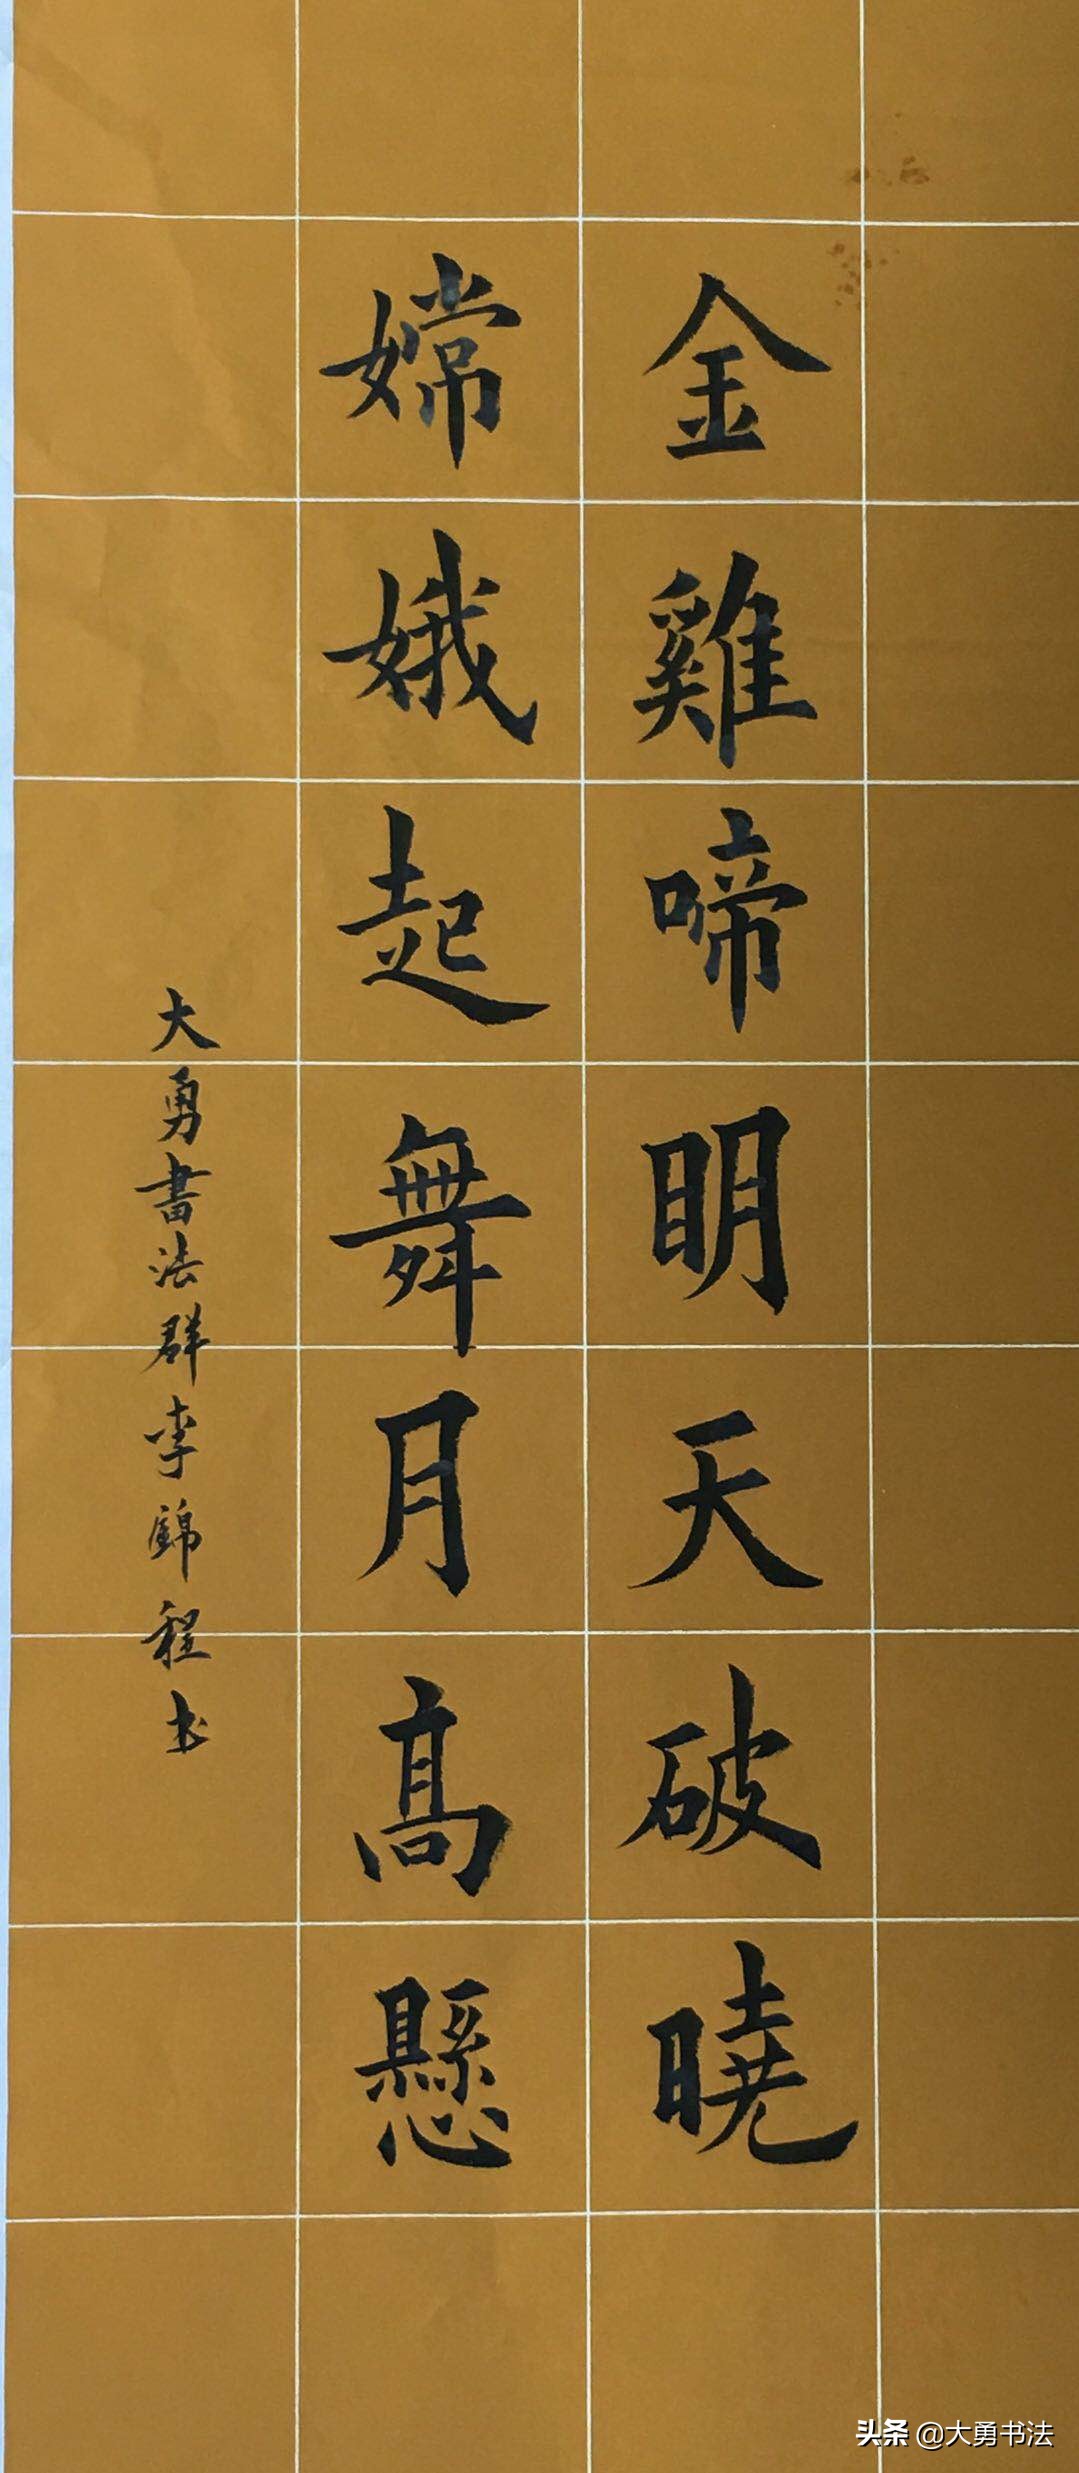 金雞啼明天破曉
嫦娥起舞月高懸
大勇書法群李錦程书
头条 @大勇书法